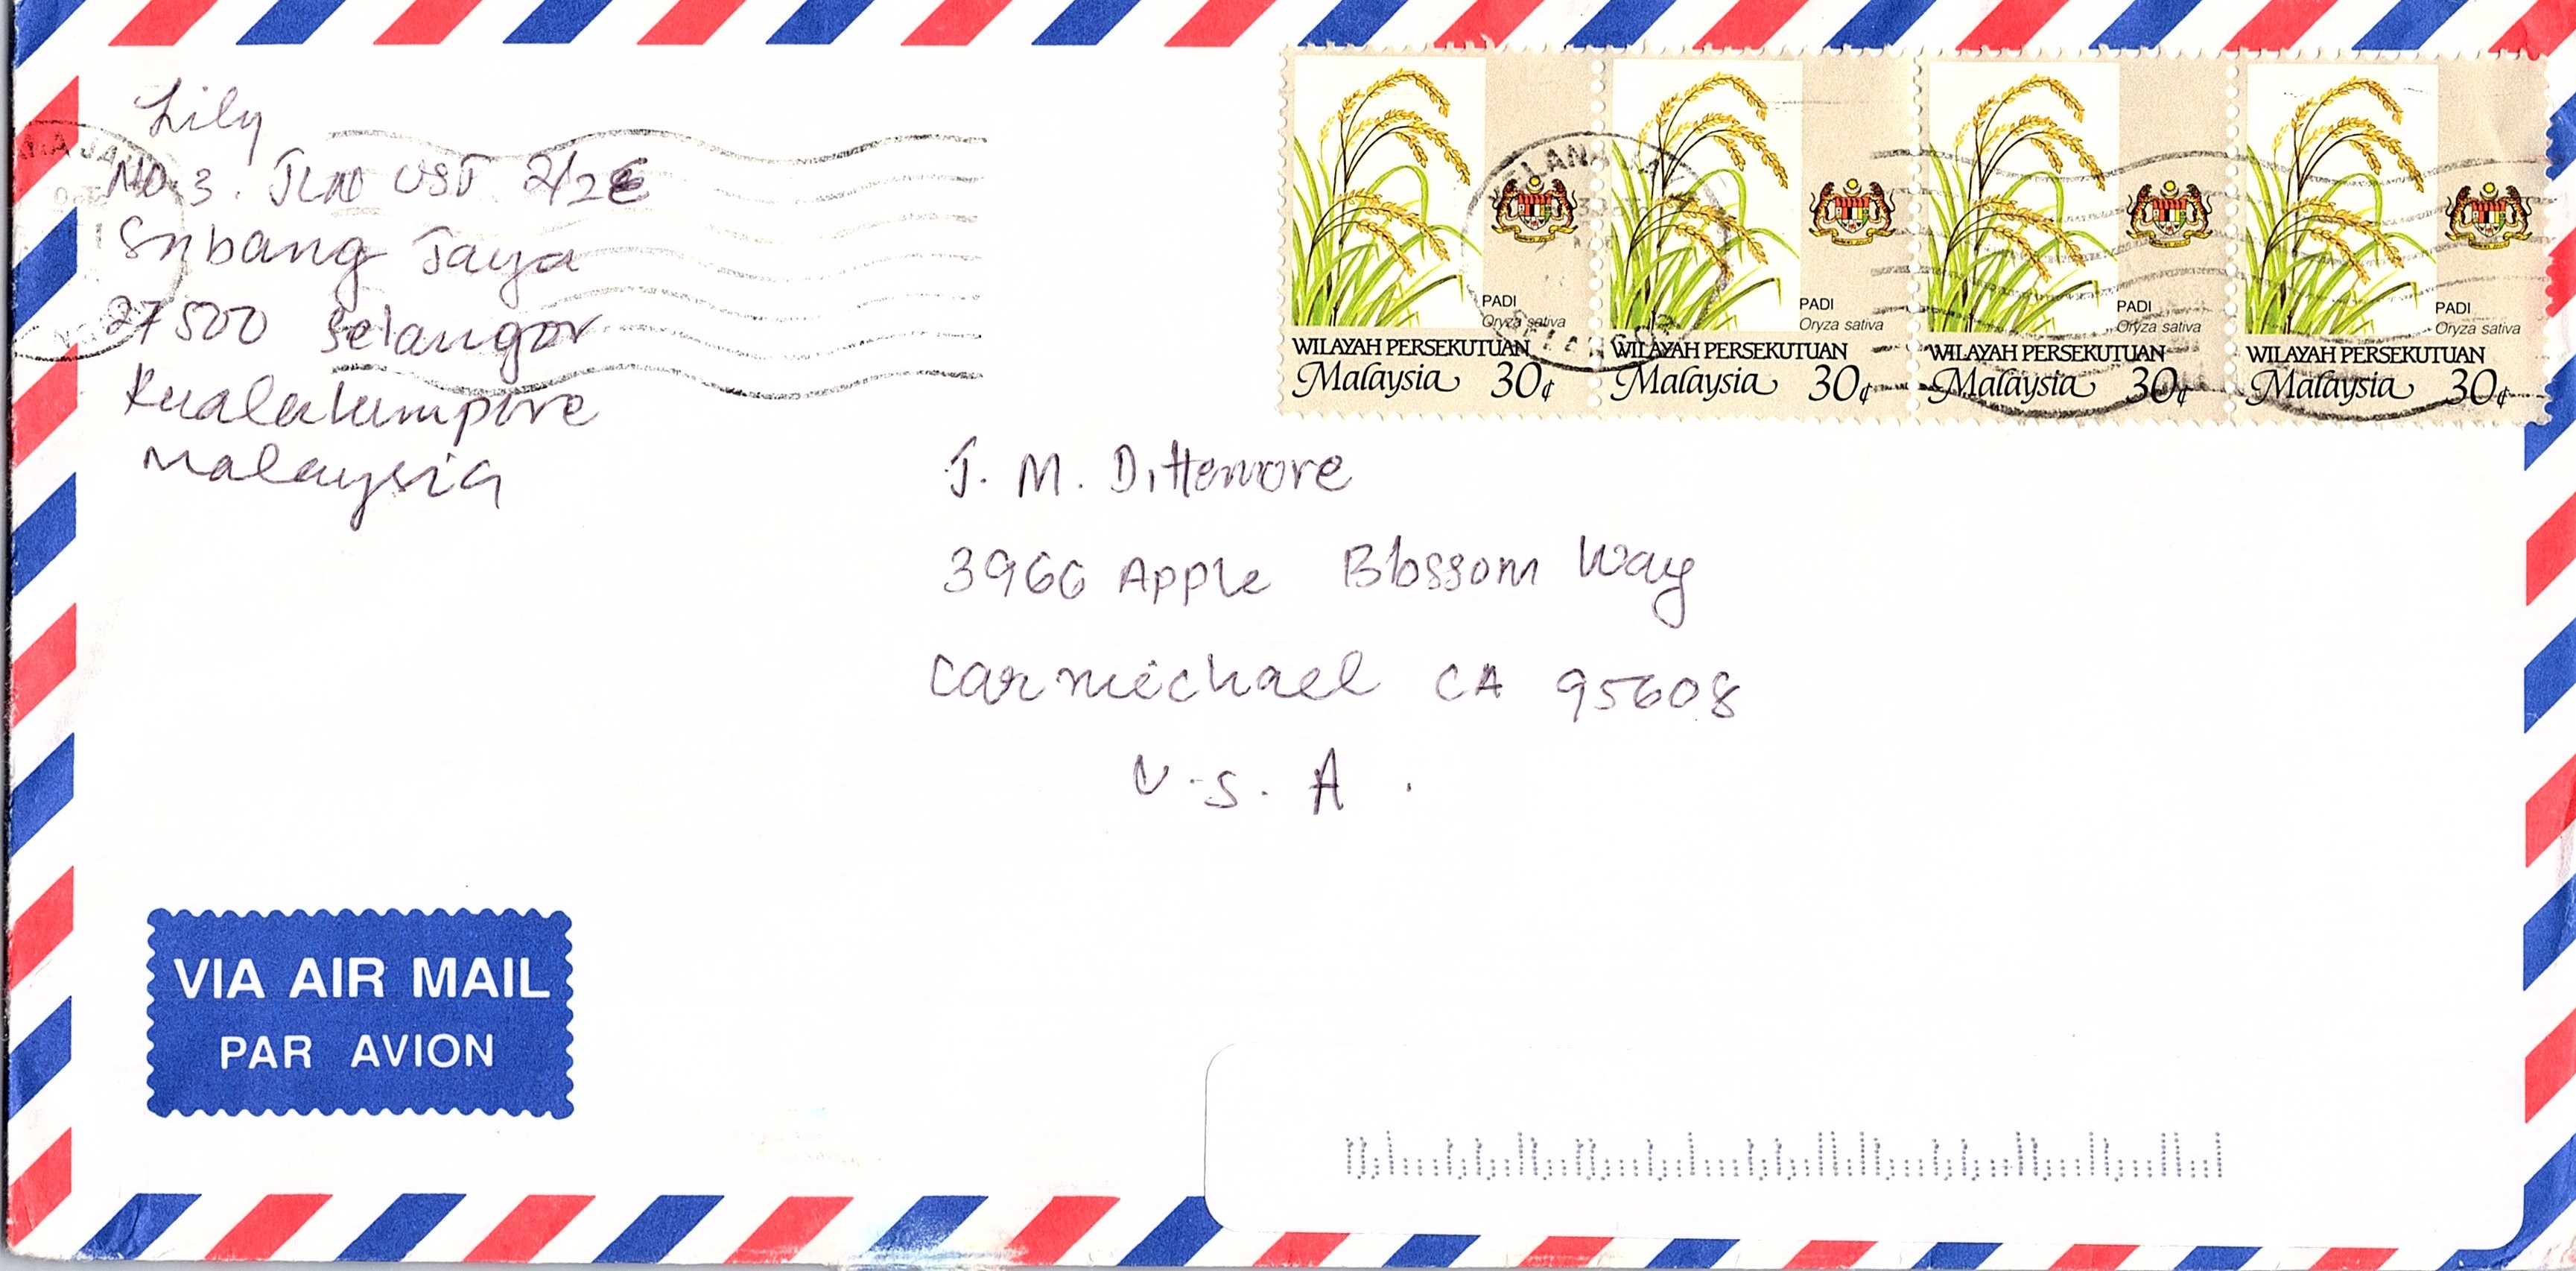 Lily
NO. 3. JLN USJ 2/2E
Subang Jaya
27500 Selangor
Kualalumpore
Malaysia
PADI
Oryza sativa
WILAYAH PERSEKUTUAN
Malaysia 30¢
PADI
Oryza sativa
WILAYAH PERSEKUTUAN
Malaysia 30¢
PADI
Oryza sativa
WILAYAH PERSEKUTUAN
Malaysia 30¢
PADI
Oryza sativa
WILAYAH PERSEKUTUAN
Malaysia 30¢
J. M. Dittemore
3966 Apple Blossom Way
Carmichael CA 95608
U.S.A.
VIA AIR MAIL
PAR AVION